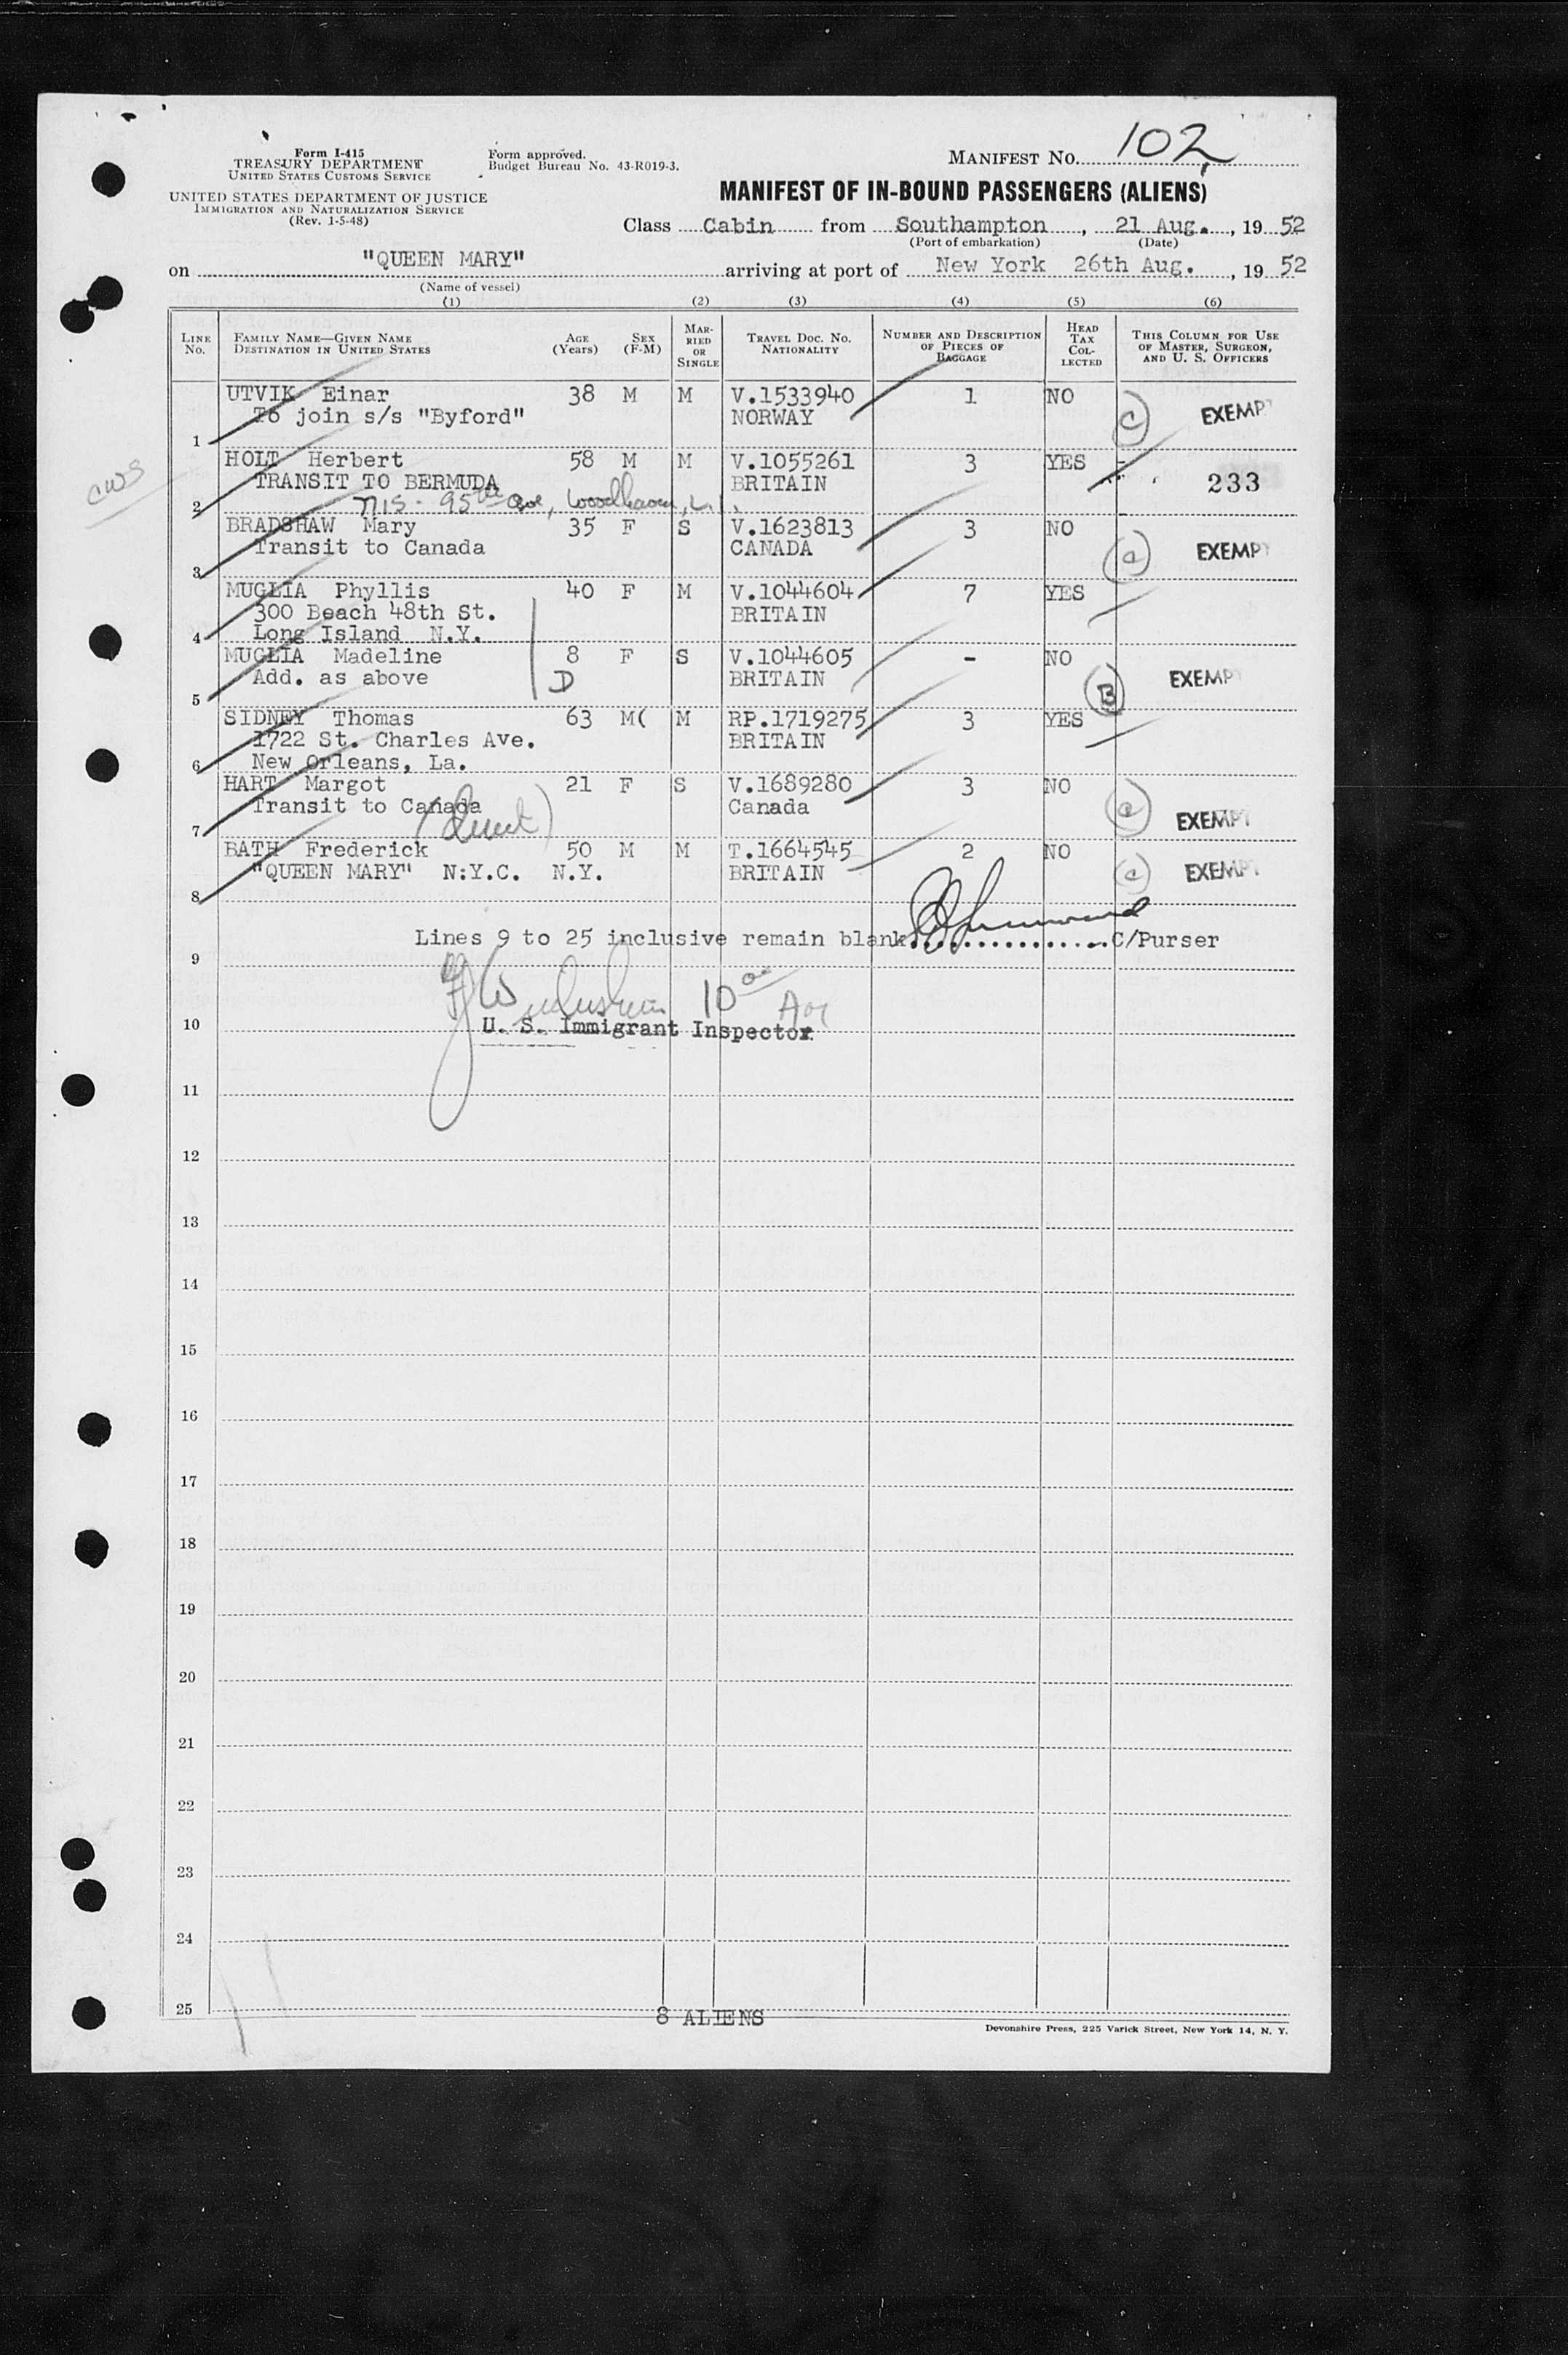 Form I-415
TREASURY DEPARTMENT
UNITED STATES CUSTOMS SERVICE
UNITED STATES DEPARTMENT OF JUSTICE
IMMIGRATION AND NATURALIZATION SERVICE
(Rev. 1-5-48)
Form approved.
Budget Bureau No. 43-R019-3.
MANIFEST No. 102
MANIFEST OF IN-BOUND PASSENGERS (ALIENS)
Class Cabin from Southampton, 21 Aug., 19 52
(Port of embarkation) (Date)
on "QUEEN MARY" arriving at port of New York 26th Aug., 19 52
(Name of vessel)
(1) (2) (3) (4) (5) (6)
LINE No. FAMILY NAME—GIVEN NAME DESTINATION IN UNITED STATES AGE (Years) SEX (F-M) MARRIED OR SINGLE TRAVEL DOC. NO. NATIONALITY NUMBER AND DESCRIPTION OF PIECES OF BAGGAGE HEAD TAX COLLECTED THIS COLUMN FOR USE OF MASTER, SURGEON, AND U. S. OFFICERS
UTVIK Einar 38 M M V.1533940 1 NO C EXEMPT
To join s/s "Byford" NORWAY
1
HOLT Herbert 58 M M V.1055261 3 YES
cws TRANSIT TO BERMUDA BRITAIN 233
2 95th Ave, Woodhaven, L.I.
BRADSHAW Mary 35 F S V.1623813 3 NO
Transit to Canada CANADA (a) EXEMPT
3
MUGLIA Phyllis 40 F M V.1044604 7 YES
300 Beach 48th St. BRITAIN
4 Long Island N.Y.
MUGLIA Madeline 8 F S V.1044605 - NO
Add. as above D BRITAIN B EXEMPT
5
SIDNEY Thomas 63 M( M RP.1719275 3 YES
1722 St. Charles Ave. BRITAIN
6 New Orleans, La.
HART Margot 21 F S V.1689280 3 NO
Transit to Canada Canada (a) EXEMPT
7
BATH Frederick 50 M M T.1664545 2 NO
"QUEEN MARY" N:Y.C. N.Y. BRITAIN (a) EXEMPT
8
Lines 9 to 25 inclusive remain blank...............C/Purser
9
10 U. S. Immigrant Inspector
11
12
13
14
15
16
17
18
19
20
21
22
23
24
25
8 ALIENS
Devonshire Press, 225 Varick Street, New York 14, N. Y.